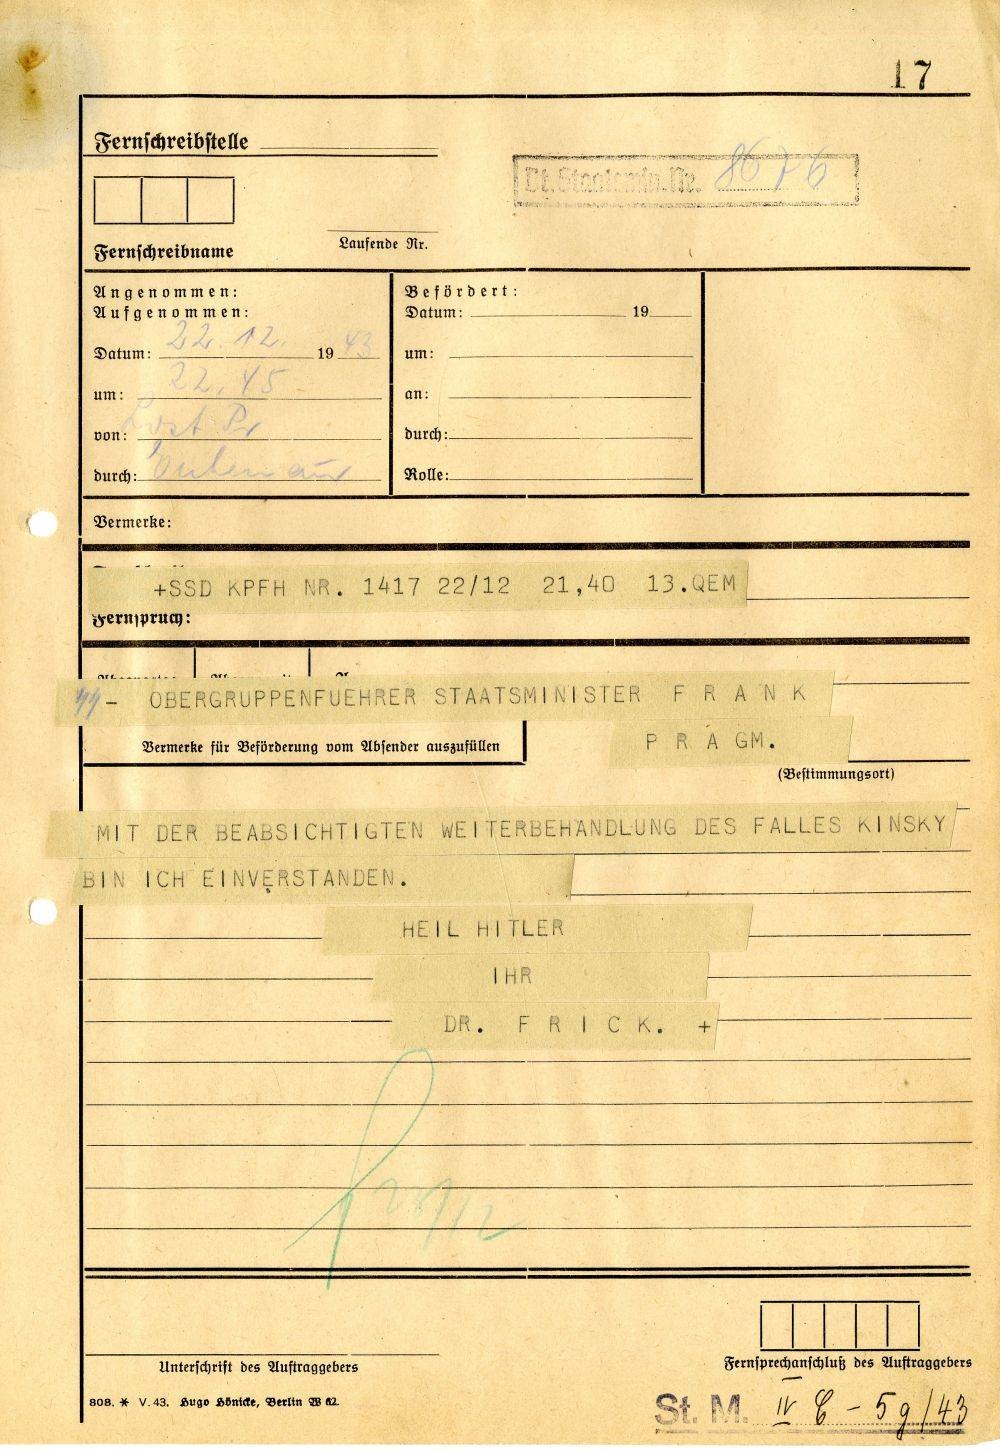 17
Fernschreibstelle
Dt. Staatsmin. Nr. 8676
Laufende Nr.
Fernschreibname
Angenommen:
Aufgenommen:
Datum: 22.12. 19 43
um: 22.45
von:
durch:
Befördert:
Datum: 19
um:
an:
durch:
Rolle:
Vermerke:
+SSD KPFH NR. 1417 22/12 21,40 13.QEM
Fernspruch:
- OBERGRUPPENFUEHRER STAATSMINISTER F R A N K
P R A GM.
Vermerke für Beförderung vom Absender auszufüllen
(Bestimmungsort)
MIT DER BEABSICHTIGTEN WEITERBEHANDLUNG DES FALLES KINSKY
BIN ICH EINVERSTANDEN.
HEIL HITLER
IHR
DR. F R I C K. +
Unterschrift des Auftraggebers
Fernsprechanschluß des Auftraggebers
808. * V. 43. Hugo Hönicke, Berlin W 62.
St. M. IV C - 5g/43